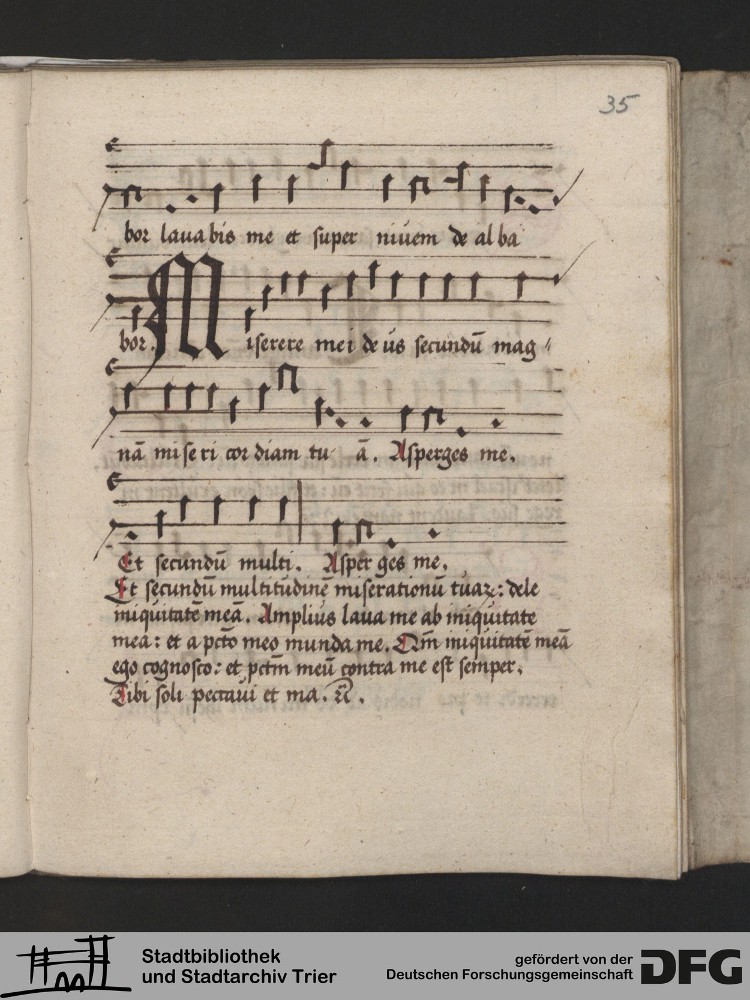 35
bor lava bis me et super nivem de al ba
bor. Miserere mei deus secundū mag
nā mi se ri cor diam tu ā. Asperges me.
Et secundū multi. Asper ges me.
Et secundū multitudinē miserationū tuaꝝ: dele
iniquitatē meā. Amplius lava me ab iniquitate
mea: et a pctō meo munda me. Qm̄ iniquitatē meā
ego cognosco: et pctm̄ meū contra me est semper.
Tibi soli peccavi et ma.
Stadtbibliothek
und Stadtarchiv Trier
gefördert von der
Deutschen Forschungsgemeinschaft
DFG